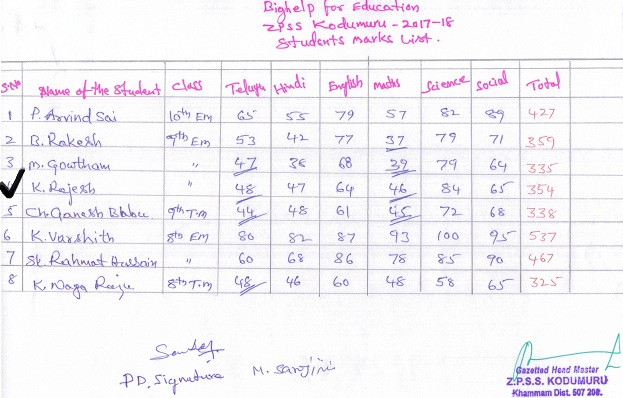 Bighelp for Education
ZPSS Kodumuru - 2017-18
Students Marks List.
S.No Name of the Student Class Telugu Hindi English maths Science Social Total
1 P. Arvind Sai 10th Em 65 55 79 57 82 89 427
2 B. Rakesh 9th Em 53 42 77 37 79 71 359
3 M. Goutham " 47 38 68 39 79 64 335
K. Rajesh " 48 47 64 46 84 65 354
5 Ch. Ganesh Babu 9th T.m 44 48 61 45 72 68 338
6 K. Varshith 8th Em 80 82 87 93 100 95 537
7 Sk. Rahmat Hussain " 60 68 86 78 85 90 467
8 K. Naga Raju 8th T.m 48 46 60 48 58 65 325
PD. Signature M. Sarojini
Gazetted Head Master
Z.P.S.S. KODUMURU
Khammam Dist. 507 208.